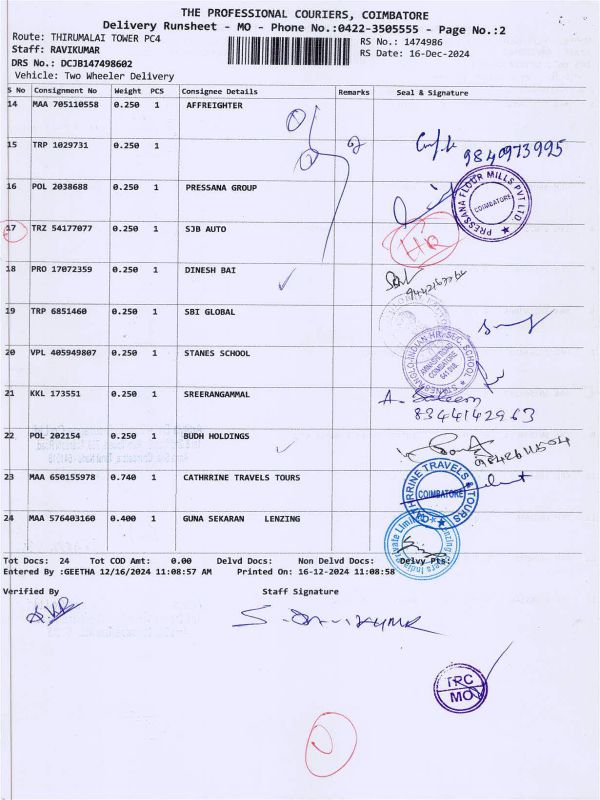 THE PROFESSIONAL COURIERS, COIMBATORE
Delivery Runsheet - MO - Phone No.:0422-3505555 - Page No.:2
Route: THIRUMALAI TOWER PC4
RS No.: 1474986
Staff: RAVIKUMAR
RS Date: 16-Dec-2024
DRS No.: DCJB147498602
Vehicle: Two Wheeler Delivery
S No Consignment No Weight PCS Consignee Details Remarks Seal & Signature
14 MAA 705110558 0.250 1 AFFREIGHTER
15 TRP 1029731 0.250 1
9840973995
16 POL 2038688 0.250 1 PRESSANA GROUP
PRESSANA FLOUR MILLS PVT LTD
COIMBATORE
17 TRZ 54177077 0.250 1 SJB AUTO
HR
18 PRO 17072359 0.250 1 DINESH BAI
19 TRP 6851460 0.250 1 SBI GLOBAL
20 VPL 405949807 0.250 1 STANES SCHOOL
ANGLO-INDIAN HR. SEC. SCHOOL
COIMBATORE
21 KKL 173551 0.250 1 SREERANGAMMAL
A. Saleem
8344142963
22 POL 202154 0.250 1 BUDH HOLDINGS
23 MAA 650155978 0.740 1 CATHRRINE TRAVELS TOURS
CATHRRINE TRAVELS & TOURS
COIMBATORE
24 MAA 576403160 0.400 1 GUNA SEKARAN LENZING
Tot Docs: 24 Tot COD Amt: 0.00 Delvd Docs: Non Delvd Docs: Delvy Pts:
Entered By :GEETHA 12/16/2024 11:08:57 AM Printed On: 16-12-2024 11:08:58
Verified By Staff Signature
S. Ravikumar
TRC
MO